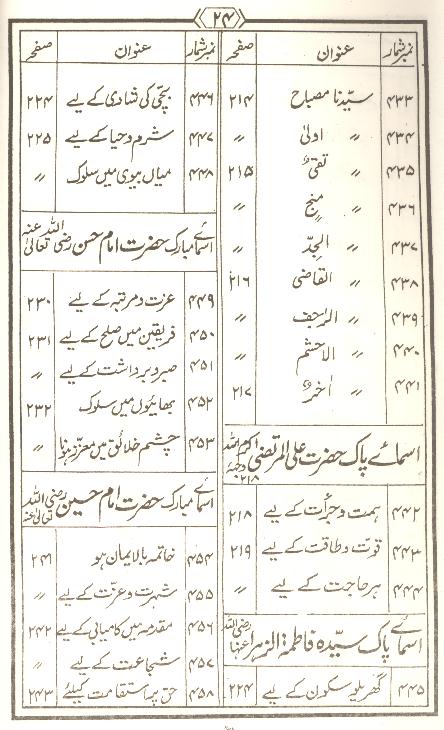 ۲۴
نمبر شمار عنوان صفحہ
۴۳۳ سیّدنا مصباح ۲۱۴
۴۳۴ 〃 اولیٰ 〃
۴۳۵ 〃 تقی ۲۱۵
۴۳۶ 〃 منج 〃
۴۳۷ 〃 الجدّ 〃
۴۳۸ 〃 القاضی ۲۱۶
۴۳۹ 〃 〃
۴۴۰ 〃 الاحشم 〃
۴۴۱ 〃 ۲۱۷
اسمائے پاک حضرت علی المرتضیٰ کرم اللہ وجہہ ۲۱۸
۴۴۲ ہمت و جرأت کے لیے ۲۱۸
۴۴۳ قوت و طاقت کے لیے ۲۱۹
۴۴۴ ہر حاجت کے لیے 〃
اسمائے پاک سیّدہ فاطمۃ الزہرا رضی اللہ عنہا
۴۴۵ گھریلو سکون کے لیے ۲۲۴
نمبر شمار عنوان صفحہ
۴۴۶ بچّی کی شادی کے لیے ۲۲۴
۴۴۷ شرم و حیا کے لیے ۲۲۵
۴۴۸ میاں بیوی میں سلوک 〃
اسمائے مبارک حضرت امام حسن رضی اللہ تعالیٰ عنہ
۴۴۹ عزت و مرتبہ کے لیے ۲۳۰
۴۵۰ فریقین میں صلح کے لیے ۲۳۱
۴۵۱ صبر و برداشت کے لیے 〃
۴۵۲ بھائیوں میں سلوک ۲۳۲
۴۵۳ چشم خلائق میں معزز ہونا 〃
اسمائے مبارک حضرت امام حسین رضی اللہ تعالیٰ عنہ
۴۵۴ خاتمہ بالایمان ہو ۲۴۱
۴۵۵ شہرت و عزّت کے لیے 〃
۴۵۶ مقدمہ میں کامیابی کے لیے ۲۴۲
۴۵۷ شجاعت کے لیے 〃
۴۵۸ حق پر استقامت کیلئے ۲۴۳